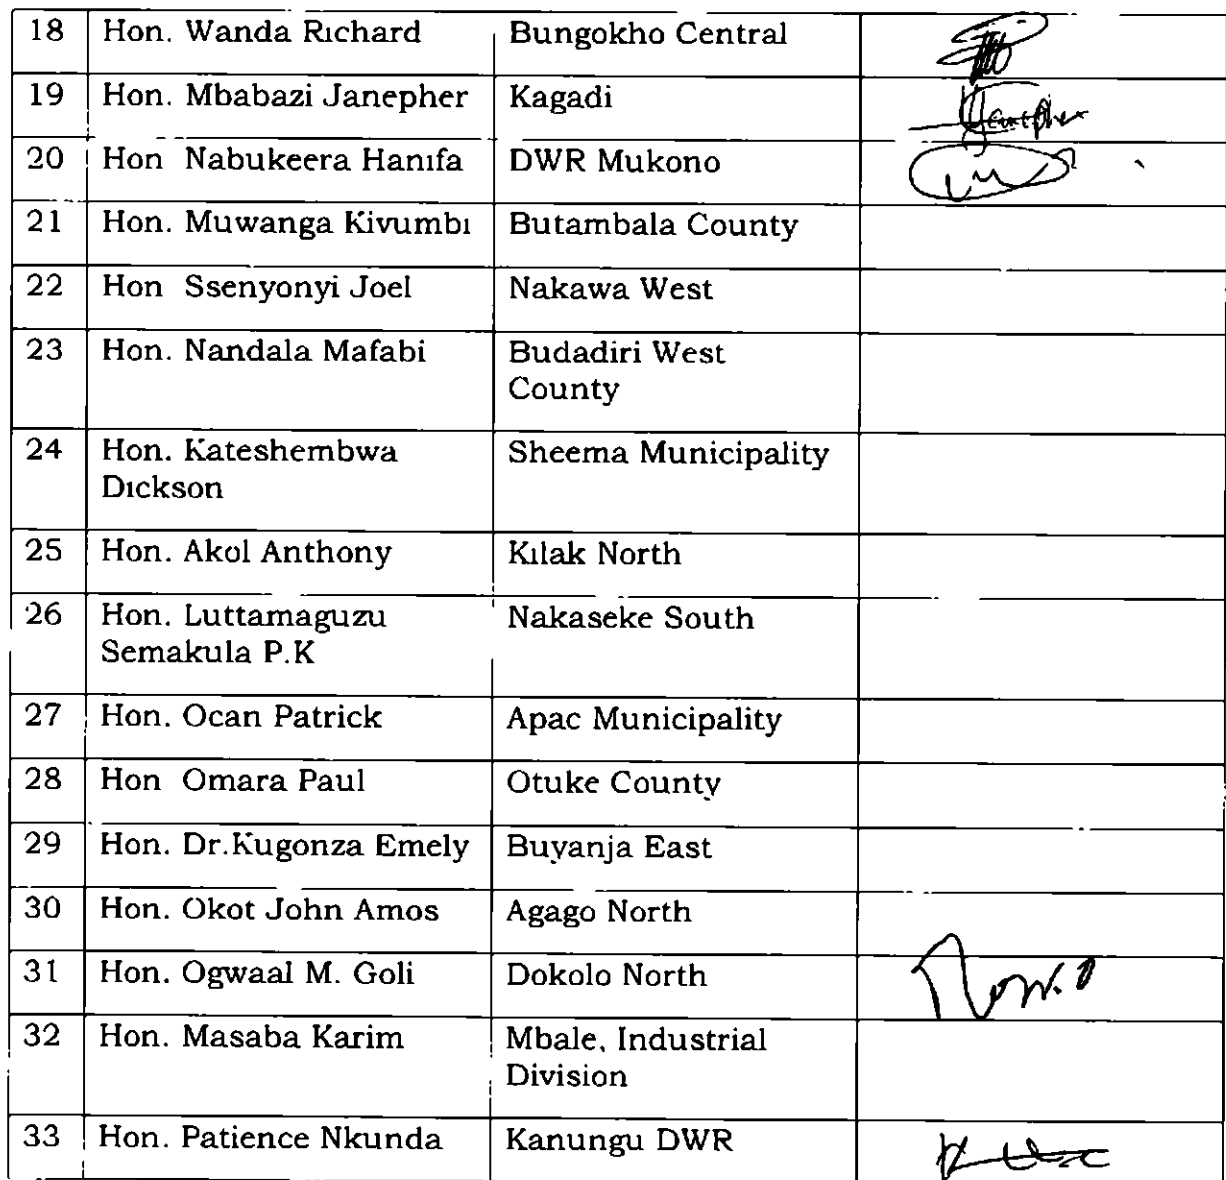 18 Hon. Wanda Richard Bungokho Central
19 Hon. Mbabazi Janepher Kagadi
20 Hon Nabukeera Hanifa DWR Mukono
21 Hon. Muwanga Kivumbi Butambala County
22 Hon Ssenyonyi Joel Nakawa West
23 Hon. Nandala Mafabi Budadiri West
County
24 Hon. Kateshembwa Sheema Municipality
Dickson
25 Hon. Akol Anthony Kilak North
26 Hon. Luttamaguzu Nakaseke South
Semakula P.K
27 Hon. Ocan Patrick Apac Municipality
28 Hon Omara Paul Otuke County
29 Hon. Dr.Kugonza Emely Buyanja East
30 Hon. Okot John Amos Agago North
31 Hon. Ogwaal M. Goli Dokolo North
32 Hon. Masaba Karim Mbale, Industrial
Division
33 Hon. Patience Nkunda Kanungu DWR